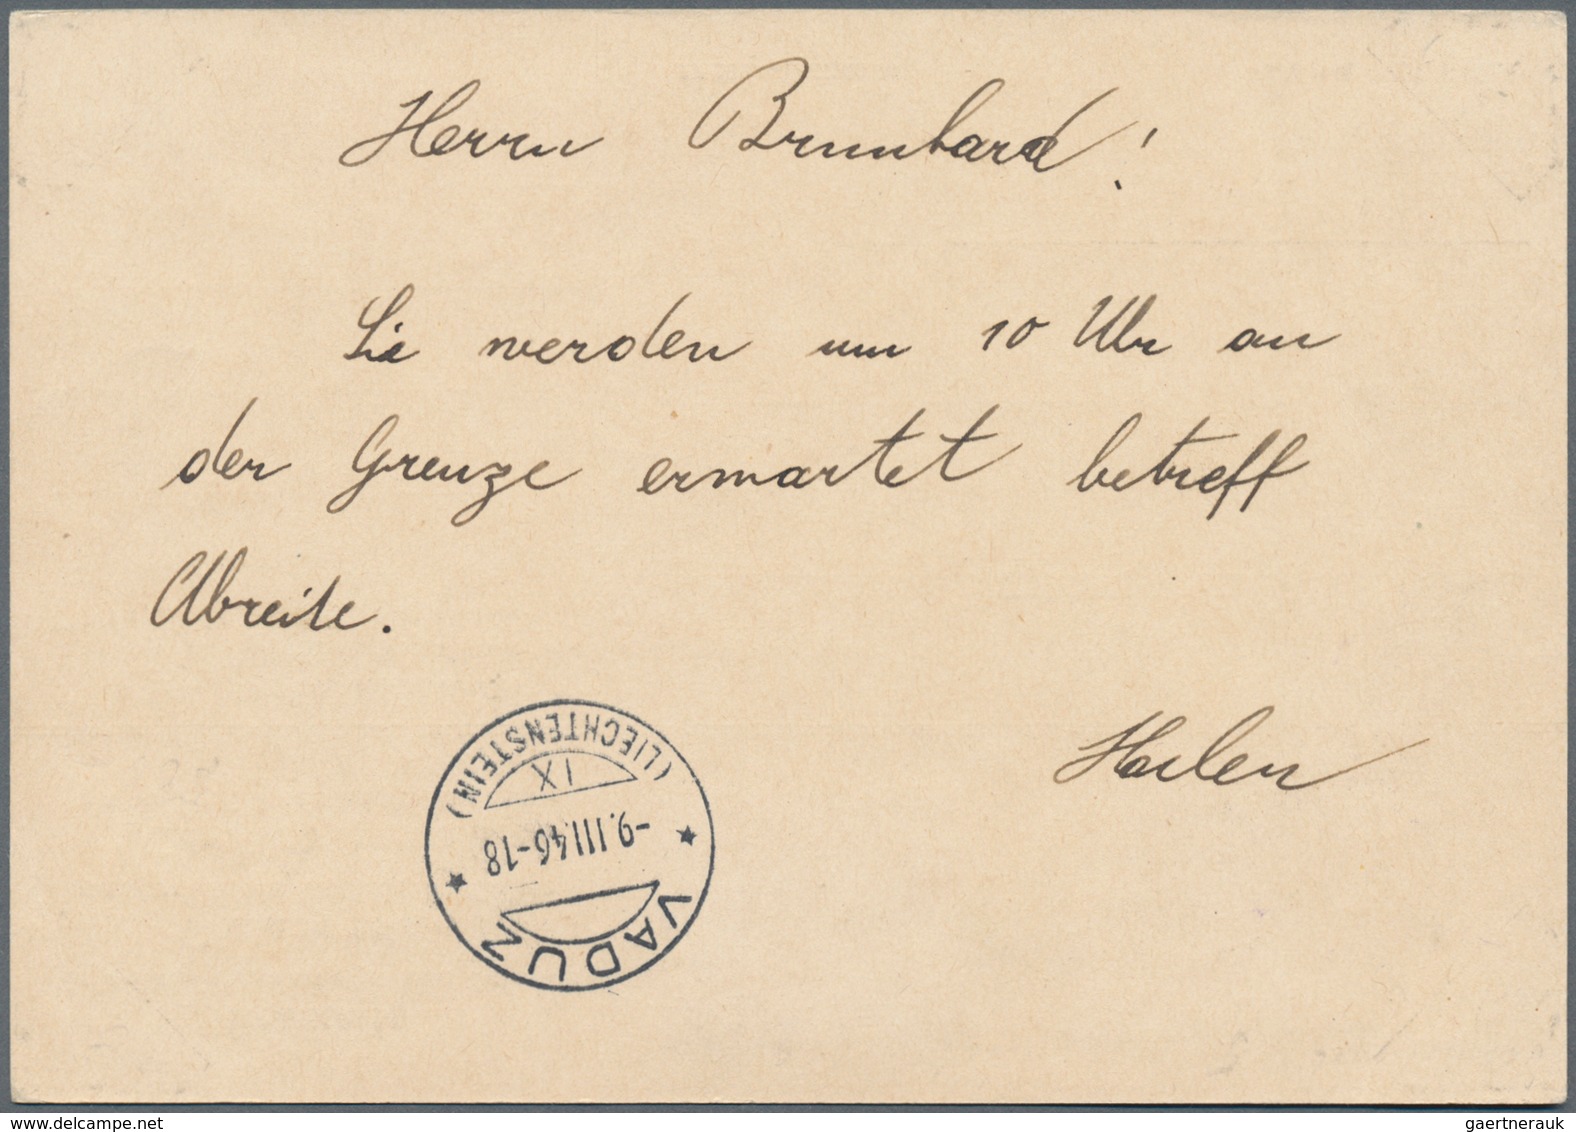 Herrn Brunhard!
Sie werden um 10 Uhr an
der Grenze erwartet betreff
Abreise.
VADUZ
-9.III.46-18
IX
(LIECHTENSTEIN)
delcampe.net
gaertnerauk